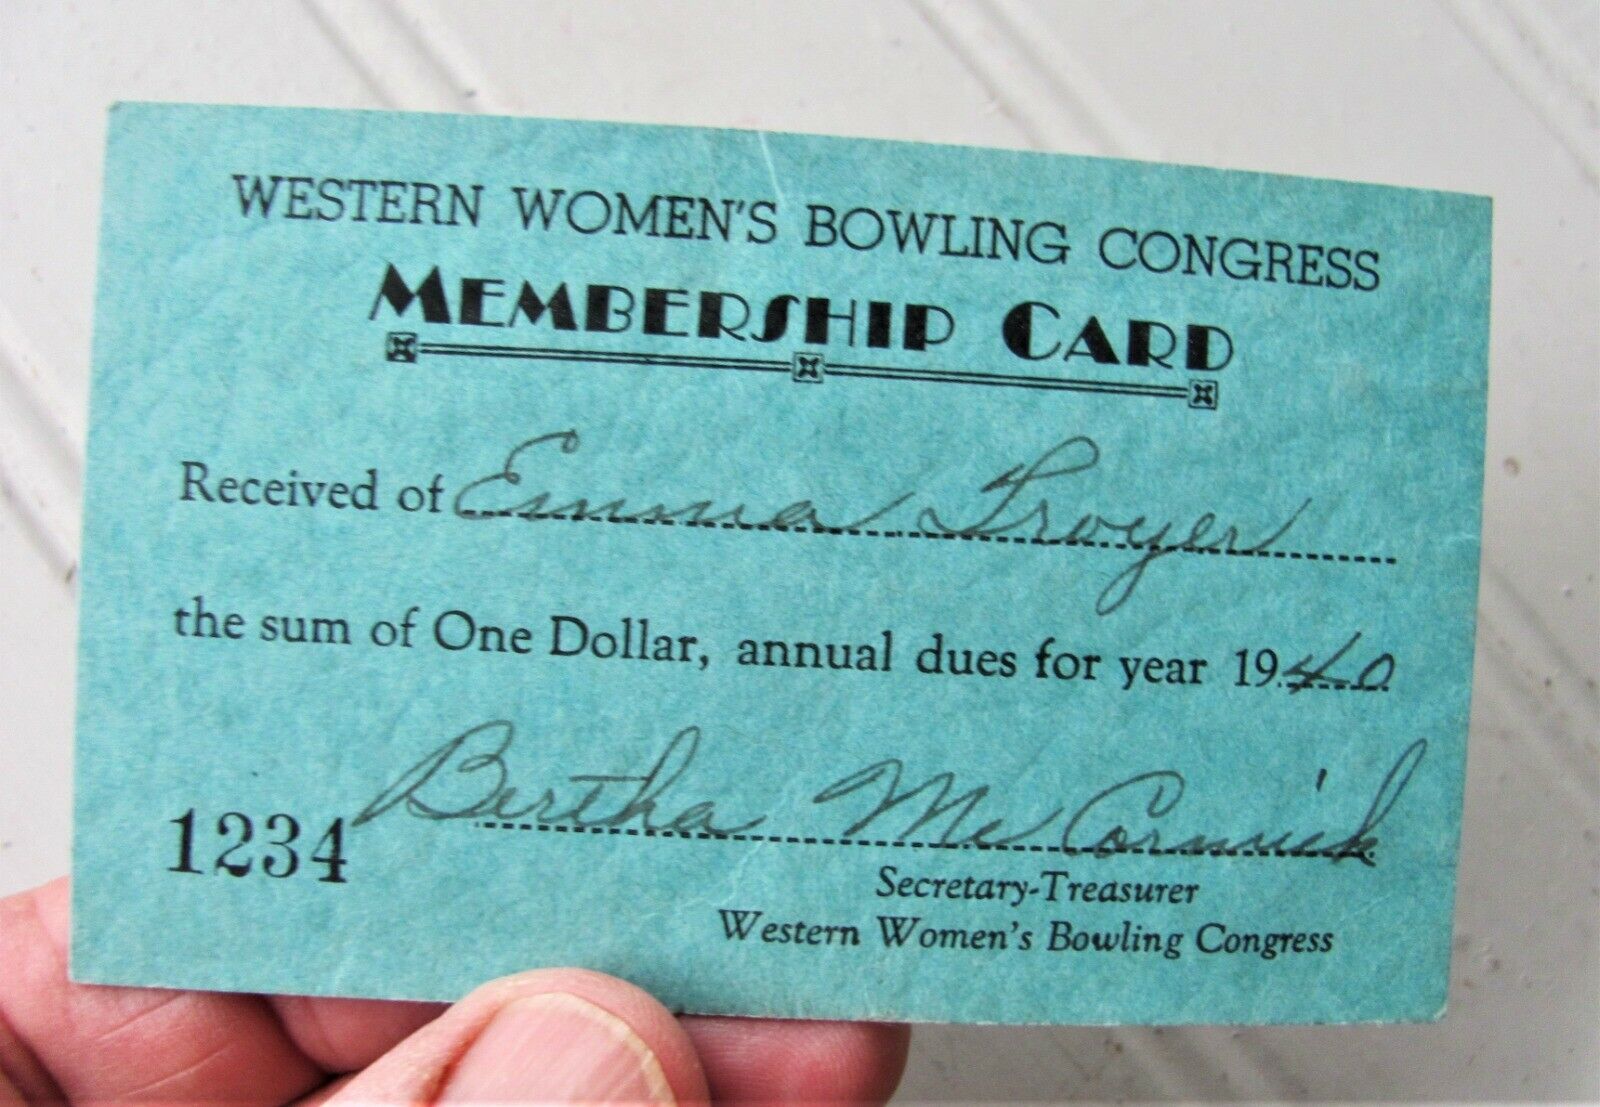 WESTERN WOMEN'S BOWLING CONGRESS
MEMBERSHIP CARD
Received of Emma Troyer
the sum of One Dollar, annual dues for year 1940
1234 Bertha McCormick
Secretary-Treasurer
Western Women's Bowling Congress